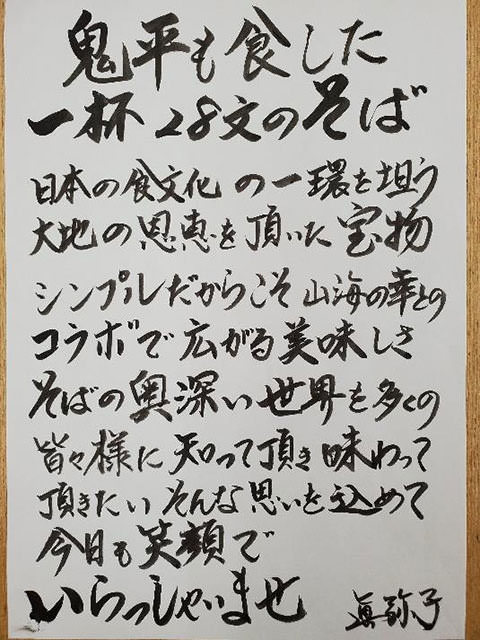 鬼平も食した
一杯28文のそば
日本の食文化の一環を担う
大地の恩恵を頂いた宝物
シンプルだからこそ山海の幸との
コラボで広がる美味しさ
そばの奥深い世界を多くの
皆々様に知って頂き味わって
頂きたいそんな思いを込めて
今日も笑顔で
いらっしゃいませ 眞弥子